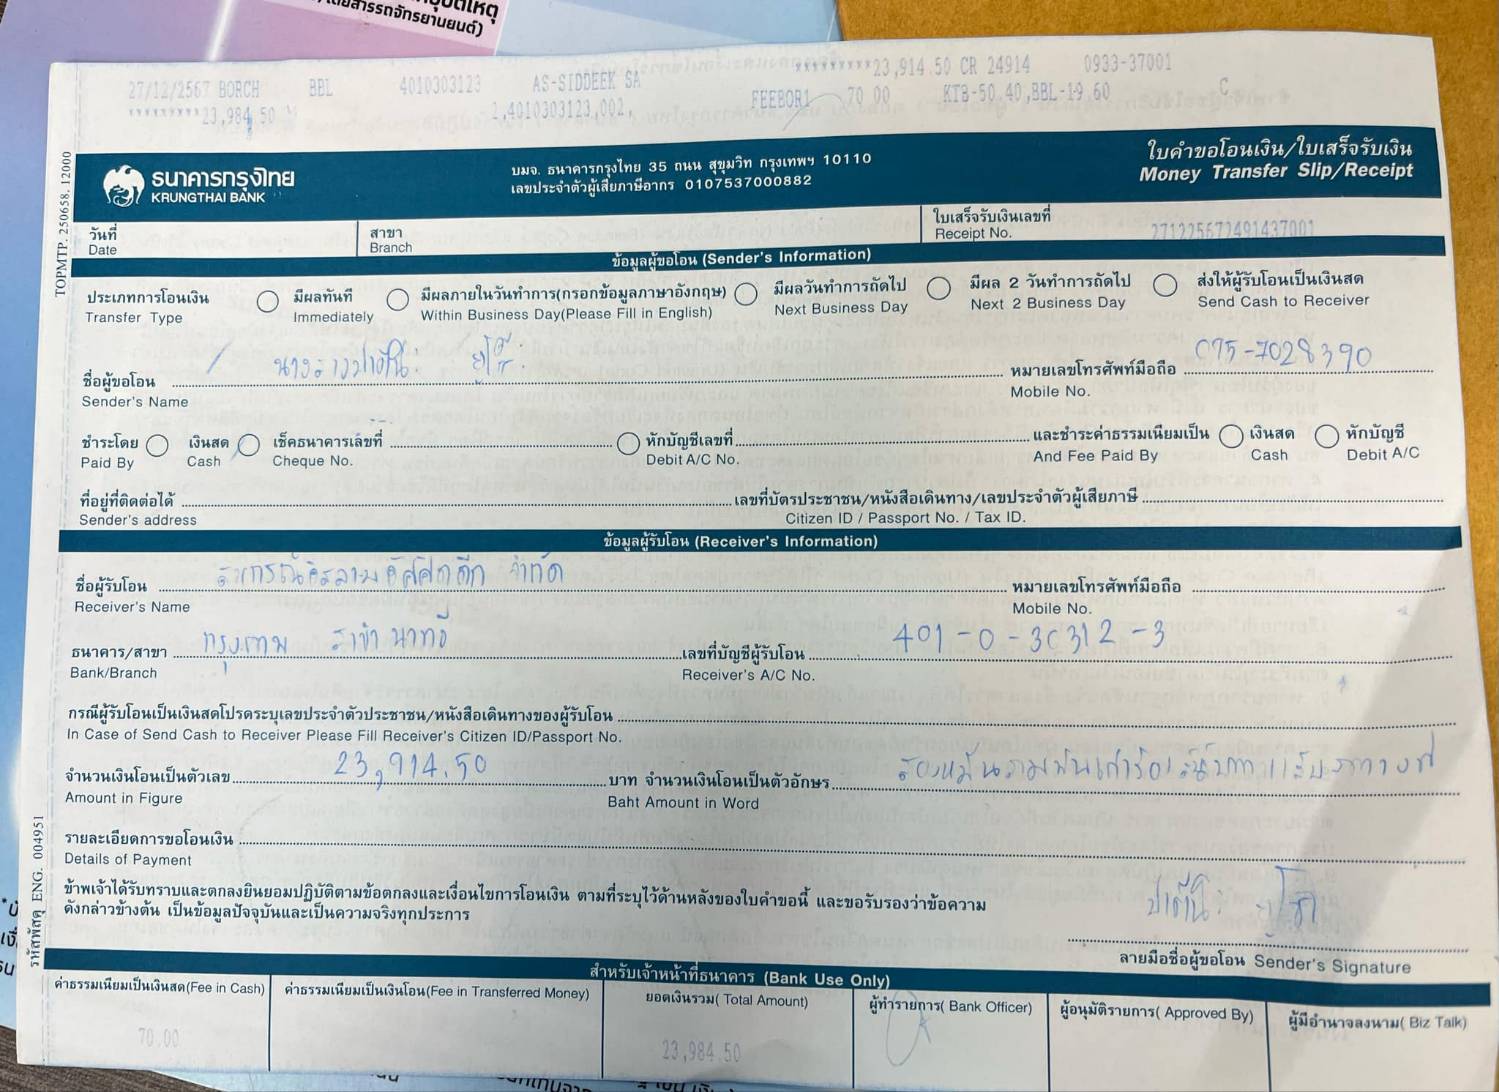 โดยสารรถจักรยานยนต์)
27/12/2567 BORCH BBL 4010303123 AS-SIDDEEK SA *********23,914.50 CR 24914 0933-37001
*********23,984.50 2,4010303123,002, FEEBOR1 70.00 KTB-50.40,BBL-19.60 C
ธนาคารกรุงไทย
KRUNGTHAI BANK
บมจ. ธนาคารกรุงไทย 35 ถนน สุขุมวิท กรุงเทพฯ 10110
เลขประจำตัวผู้เสียภาษีอากร 0107537000882
ใบคำขอโอนเงิน/ใบเสร็จรับเงิน
Money Transfer Slip/Receipt
TOPMTP. 250658. 12000
วันที่
Date
สาขา
Branch
ใบเสร็จรับเงินเลขที่
Receipt No. 271225672491437001
ข้อมูลผู้ขอโอน (Sender's Information)
ประเภทการโอนเงิน มีผลทันที มีผลภายในวันทำการ(กรอกข้อมูลภาษาอังกฤษ) มีผลวันทำการถัดไป มีผล 2 วันทำการถัดไป ส่งให้ผู้รับโอนเป็นเงินสด
Transfer Type Immediately Within Business Day(Please Fill in English) Next Business Day Next 2 Business Day Send Cash to Receiver
ชื่อผู้ขอโอน หมายเลขโทรศัพท์มือถือ 075-7028390
Sender's Name Mobile No.
ชำระโดย เงินสด เช็คธนาคารเลขที่ หักบัญชีเลขที่ และชำระค่าธรรมเนียมเป็น เงินสด หักบัญชี
Paid By Cash Cheque No. Debit A/C No. And Fee Paid By Cash Debit A/C
ที่อยู่ที่ติดต่อได้ เลขที่บัตรประชาชน/หนังสือเดินทาง/เลขประจำตัวผู้เสียภาษี
Sender's address Citizen ID / Passport No. / Tax ID.
ข้อมูลผู้รับโอน (Receiver's Information)
ชื่อผู้รับโอน สหกรณ์อิสลามอัศศิดดีก จำกัด หมายเลขโทรศัพท์มือถือ
Receiver's Name Mobile No.
ธนาคาร/สาขา กรุงเทพ สาขา นาทวี เลขที่บัญชีผู้รับโอน 401-0-30312-3
Bank/Branch Receiver's A/C No.
กรณีผู้รับโอนเป็นเงินสดโปรดระบุเลขประจำตัวประชาชน/หนังสือเดินทางของผู้รับโอน
In Case of Send Cash to Receiver Please Fill Receiver's Citizen ID/Passport No.
จำนวนเงินโอนเป็นตัวเลข 23,914.50 บาท จำนวนเงินโอนเป็นตัวอักษร
Amount in Figure Baht Amount in Word
รายละเอียดการขอโอนเงิน
Details of Payment
ข้าพเจ้าได้รับทราบและตกลงยินยอมปฏิบัติตามข้อตกลงและเงื่อนไขการโอนเงิน ตามที่ระบุไว้ด้านหลังของใบคำขอนี้ และขอรับรองว่าข้อความ
ดังกล่าวข้างต้น เป็นข้อมูลปัจจุบันและเป็นความจริงทุกประการ
ลายมือชื่อผู้ขอโอน Sender's Signature
รหัสพัสดุ ENG. 004951
สำหรับเจ้าหน้าที่ธนาคาร (Bank Use Only)
ค่าธรรมเนียมเป็นเงินสด(Fee in Cash) ค่าธรรมเนียมเป็นเงินโอน(Fee in Transferred Money) ยอดเงินรวม( Total Amount) ผู้ทำรายการ( Bank Officer) ผู้อนุมัติรายการ( Approved By) ผู้มีอำนาจลงนาม( Biz Talk)
70.00 23,984.50